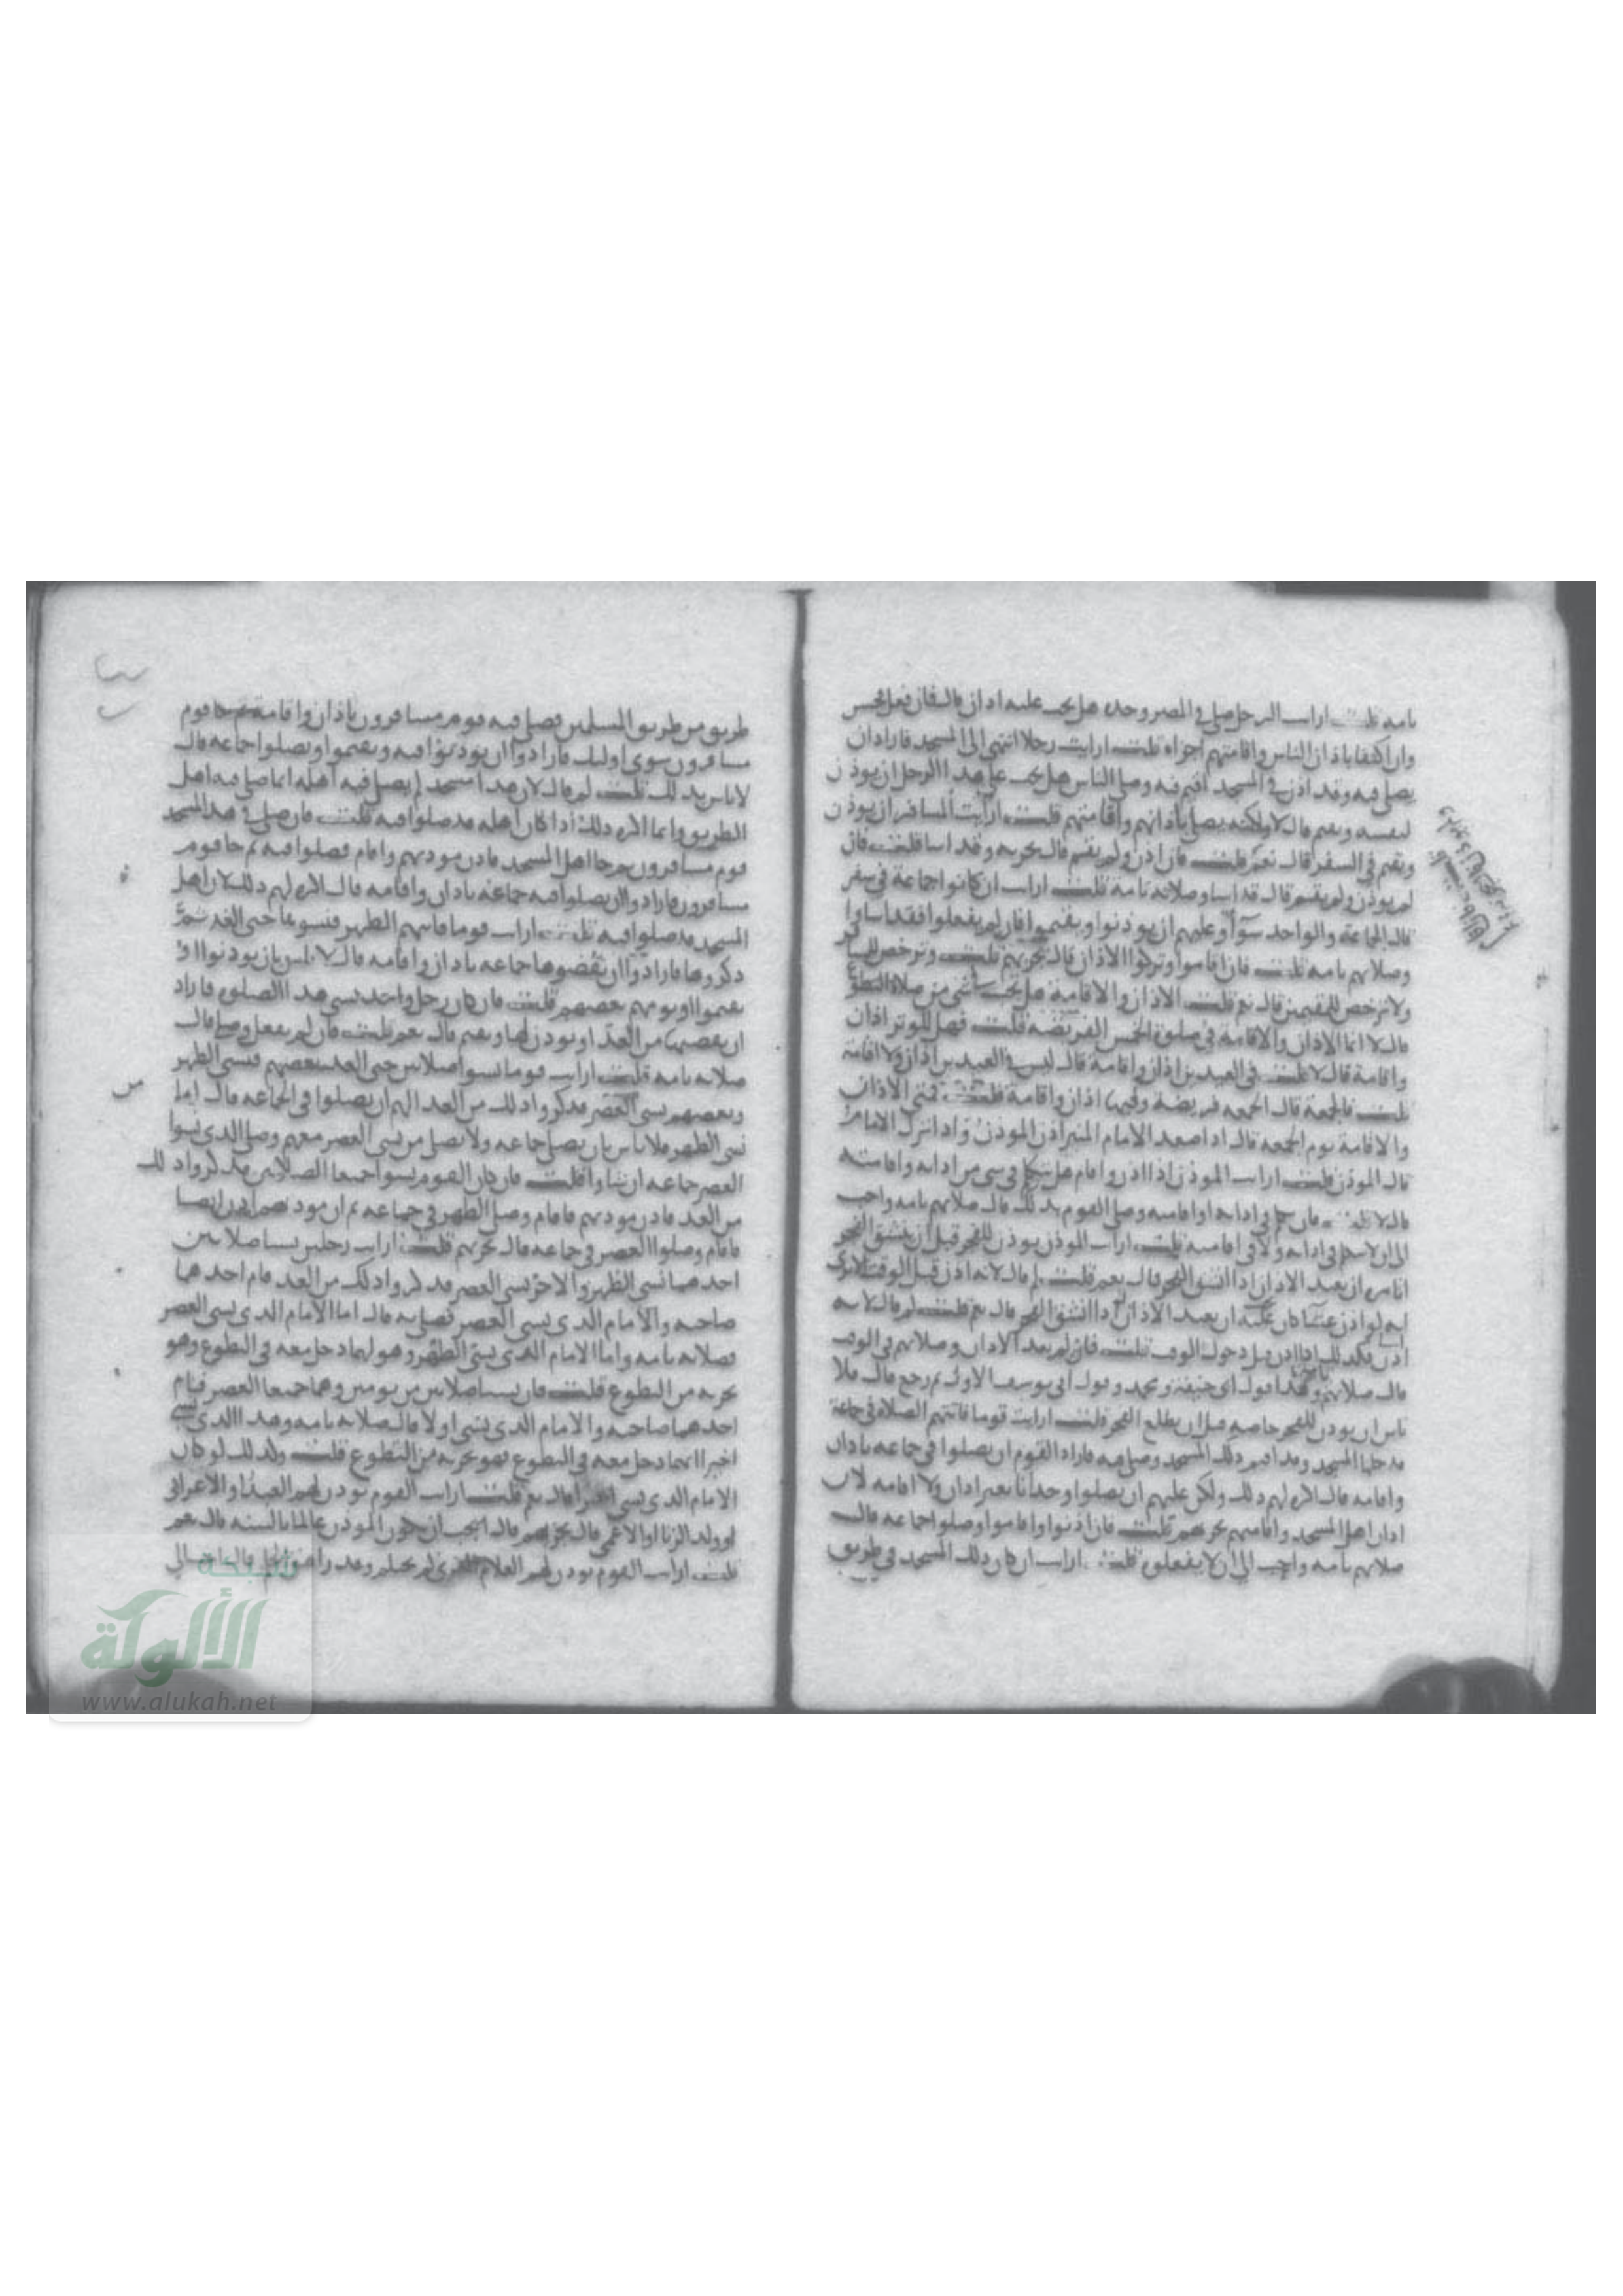 تامه قلت ارايت الرجل يصلي في المصر وحده هل يجب عليه اذان قال فان فعل فحسن
وان اكتفا باذان الناس واقامتهم اجزاه قلت ارايت رجلا انتهى الى المسجد فاراد ان
يصلي فيه وقد اذن في المسجد اقيم فيه وصلى الناس هل يجب على هذا الرجل ان يوذن
لنفسه ويقيم قال لا ولكنه يصلي باذانهم واقامتهم قلت ارايت المسافر ان يوذن
ويقيم في السفر قال نعم قلت فان اذن ولم يقيم قال يجزيه وقد اسا قلت فان
لم يوذن ولم يقيم قال قد اسا وصلاته تامة قلت ارايت ان كانوا جماعة في سفر
قال الجماعة والواحد سوآ وعليهم ان يوذنوا ويقيموا فان لم يفعلوا فقد اساوا
وصلاتهم تامه قلت فان اقاموا وتركوا الاذان قال يجزيهم قلت وترخص للمسافر
ولا ترخص للمقيمين قال نعم قلت الاذان والاقامة هل يجب في شي من صلاة التطوع
قال لا انما الاذان والاقامة في صلوة الخمس الفريضه قلت فهل للوتر اذان
واقامة قال لا قلت في العيدين اذان واقامة قال ليس في العيدين اذان ولا اقامة
قلت فالجمعة قال الجمعه فريضة وفيها اذان واقامة قلت فمتى الاذان
والاقامة يوم الجمعه قال اذا صعد الامام المنبر اذن الموذن واذا نزل الامام
قال الموذن قلت ارايت الموذن اذا اذن واقام هل يتكلم في شي من اذانه واقامته
قال لا قلت فان تكلم في اذانه او اقامته وصلى القوم بذلك قال صلاتهم تامه واحب
الي ان لا يتكلم في اذانه ولا في اقامته قلت ارايت الموذن يوذن للفجر قبل ان ينشق الفجر
اتامره ان يعيد الاذان اذا انشق الفجر قال نعم قلت لم قال لانه اذن قبل الوقت الا ترى
انه لو اذن عشا كان عليه ان يعيد الاذان اذا انشق الفجر قال نعم قلت لم قال لانه
اذن قبل دخول الوقت قلت فان لم يعيد الاذان وصلاتهم في الوقت
قال صلاتهم وهذا قول ابي حنيفة ومحمد وقول ابي يوسف الاول ثم رجع قال فلا
باس ان يوذن للفجر خاصه قبل ان يطلع الفجر قلت ارايت قوما فاتتهم الصلاة في جماعة
فدخلوا المسجد وقد اقيم في ذلك المسجد وصلي فيه فاراد القوم ان يصلوا في جماعه باذان
واقامه قال اكره لهم ذلك ولكن عليهم ان يصلوا وحدانا بغير اذان ولا اقامه لان
اذان اهل المسجد واقامتهم تجزيهم قلت فان اذنوا واقاموا وصلوا جماعه قال
صلاتهم تامه واحب الي ان لا يفعلوا قلت ارايت ان كان ذلك المسجد في طريق
طريق من طريق المسلمين فصلى فيه قوم مسافرون باذان واقامة ثم جا قوم
مسافرون سوى اوليك فارادوا ان يوذنوا فيه ويقيموا ويصلوا جماعه قال
لا باس بذلك قلت لم قال لان هذا مسجد لم يصل فيه اهله انما صلى فيه اهل
الطريق وانما اكره ذلك اذا كان اهله قد صلوا فيه قلت فان صلى في هذا المسجد
قوم مسافرون ثم جا اهل المسجد فاذن موذنهم واقام فصلوا فيه ثم جا قوم
مسافرون فارادوا ان يصلوا فيه جماعه باذان واقامه قال اكره لهم ذلك لان اهل
المسجد قد صلوا فيه قلت ارايت قوما فاتتهم الظهر فنسوها حتى الغد ثم
ذكروها فارادوا ان يقضوها جماعه باذان واقامه قال لا باس بان يوذنوا او
يقيموا او يومهم بعضهم قلت فان كان رجل واحد نسي هذا الصلوه فاراد
ان يقضيها من الغد ايوذن لها ويقيم قال نعم قلت فان لم يفعل وصلى قال
صلاته تامه قلت ارايت قوما نسوا صلاتين حتى الغد بعضهم نسي الظهر
وبعضهم نسي العصر فذكروا ذلك من الغد الهم ان يصلوا في الجماعه قال اما من
نسي الظهر فلا باس بان يصلي جماعه ولا يصل من نسي العصر معهم وصلى الذي نسوا
العصر جماعه ان شاوا قلت فان كان القوم نسوا جميعا الصلاتين فذكروا ذلك
من الغد فاذن موذنهم فاقام وصلى الظهر في جماعه ثم ان موذنهم اذن ايضا
فاقام وصلوا العصر في جماعه قال يجزيهم قلت ارايت رجلين نسيا صلاتين
احدهما نسي الظهر والاخر نسي العصر فذكروا ذلك من الغد فام احدهما
صاحبه والامام الذي نسي العصر فصلى به قال اما الامام الذي نسي العصر
فصلاته تامه واما الامام الذي نسي الظهر وهو لهما دخل معه في التطوع وهو
يجزيه من التطوع قلت فان نسيا صلاتين من يومين وهما جميعا العصر فام
احدهما صاحبه والامام الذي نسي اولا قال صلاته تامه وهذا الذي نسي
اخيرا انما دخل معه في التطوع فهو يجزيه من التطوع قلت وكذلك لو كان
الامام الذي نسي اخيرا قال نعم قلت ارايت القوم يوذن لهم العبد او الاعرابي
او ولد الزنا او الاعمى قال يجزيهم قال احب ان يكون الموذن عالما بالسنه قال نعم
قلت ارايت القوم يوذن لهم الغلام الذي لم يحتلم وقد راهق
شبكة
الألوكة
www.alukah.net